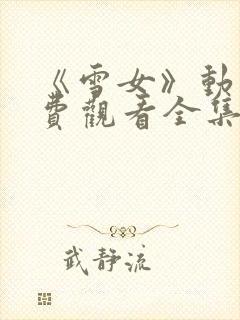 《雪女》動
費觀看全集
武靜流